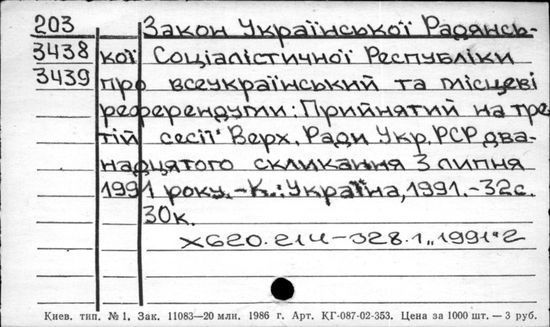 203 Закон Української Радянсь-
3438 кої Соціалістичної Республіки
3439 про всеукраїнський та місцеві
референдуми: Прийнятий на тре-
тій сесії Верх. Ради Укр. РСР два-
надцятого скликання 3 липня
1991 року.-К.: Україна, 1991.-32с.
30к.
Х620.214-328.1„1991"2
Киев. тип. № 1. Зак. 11083—20 млн. 1986 г. Арт. КГ-087-02-353. Цена за 1000 шт. — 3 руб.